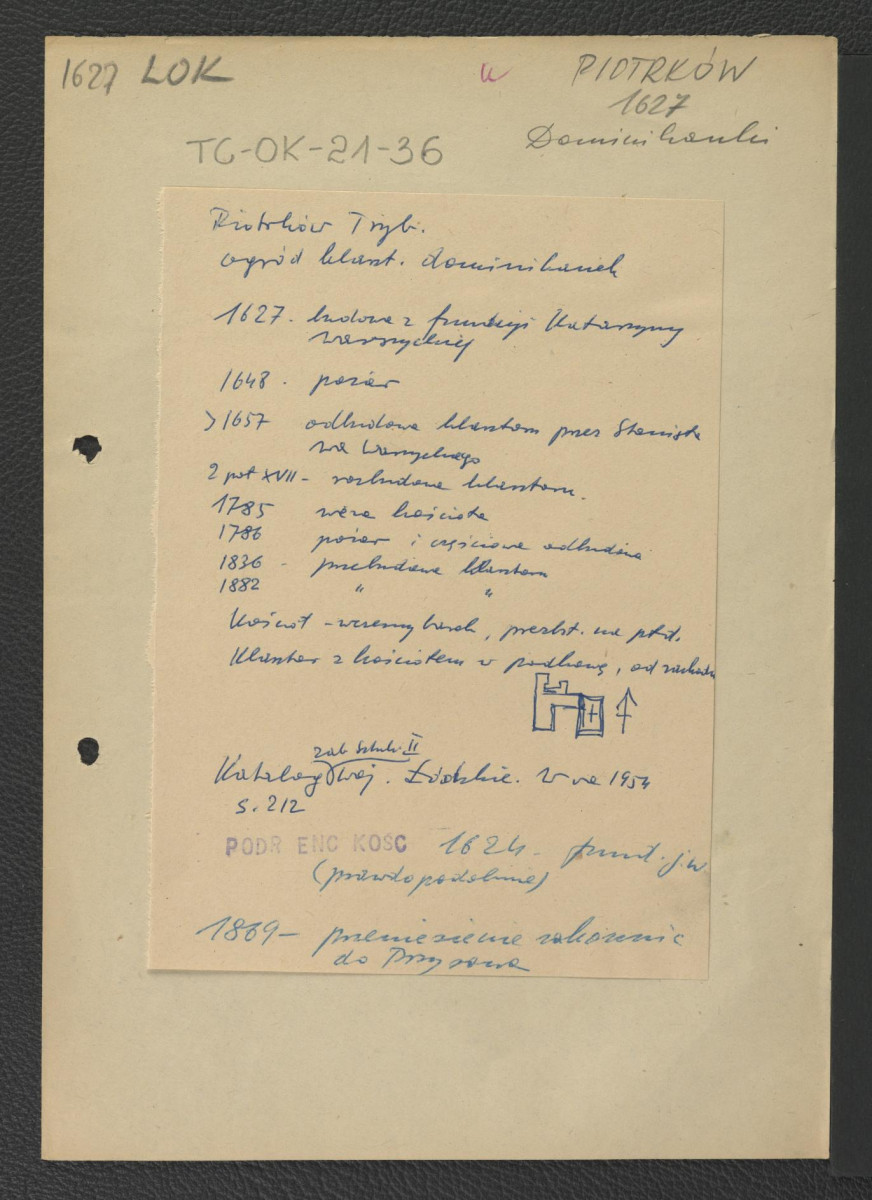 1627 LOK
u
PIOTRKÓW
1627
Dominikanki
TC-OK-21-36
Piotrków Tryb.
ogród klaszt. dominikanek
1627 - budowa z fundacji Katarzyny
Warszyckiej
1648 - pożar
>1657 odbudowa klasztoru przez Stanisła
wa Warszyckiego
2 poł XVII - rozbudowa klasztoru.
1785 wieża kościoła
1786 pożar i częściowa odbudowa
1836 - przebudowa klasztoru
1882 " "
Kościół - wczesny barok, prezbt. na płd.
Klasztor z kościołem w podkowę, od zachodu
zab Sztuki II
Katalog woj. Łódzkie. W-wa 1954
s. 212
PODR ENC KOŚC 1624 - fund. j.w.
(prawdopodobnie)
1869 - przeniesienie zakonnic
do Przyrowa